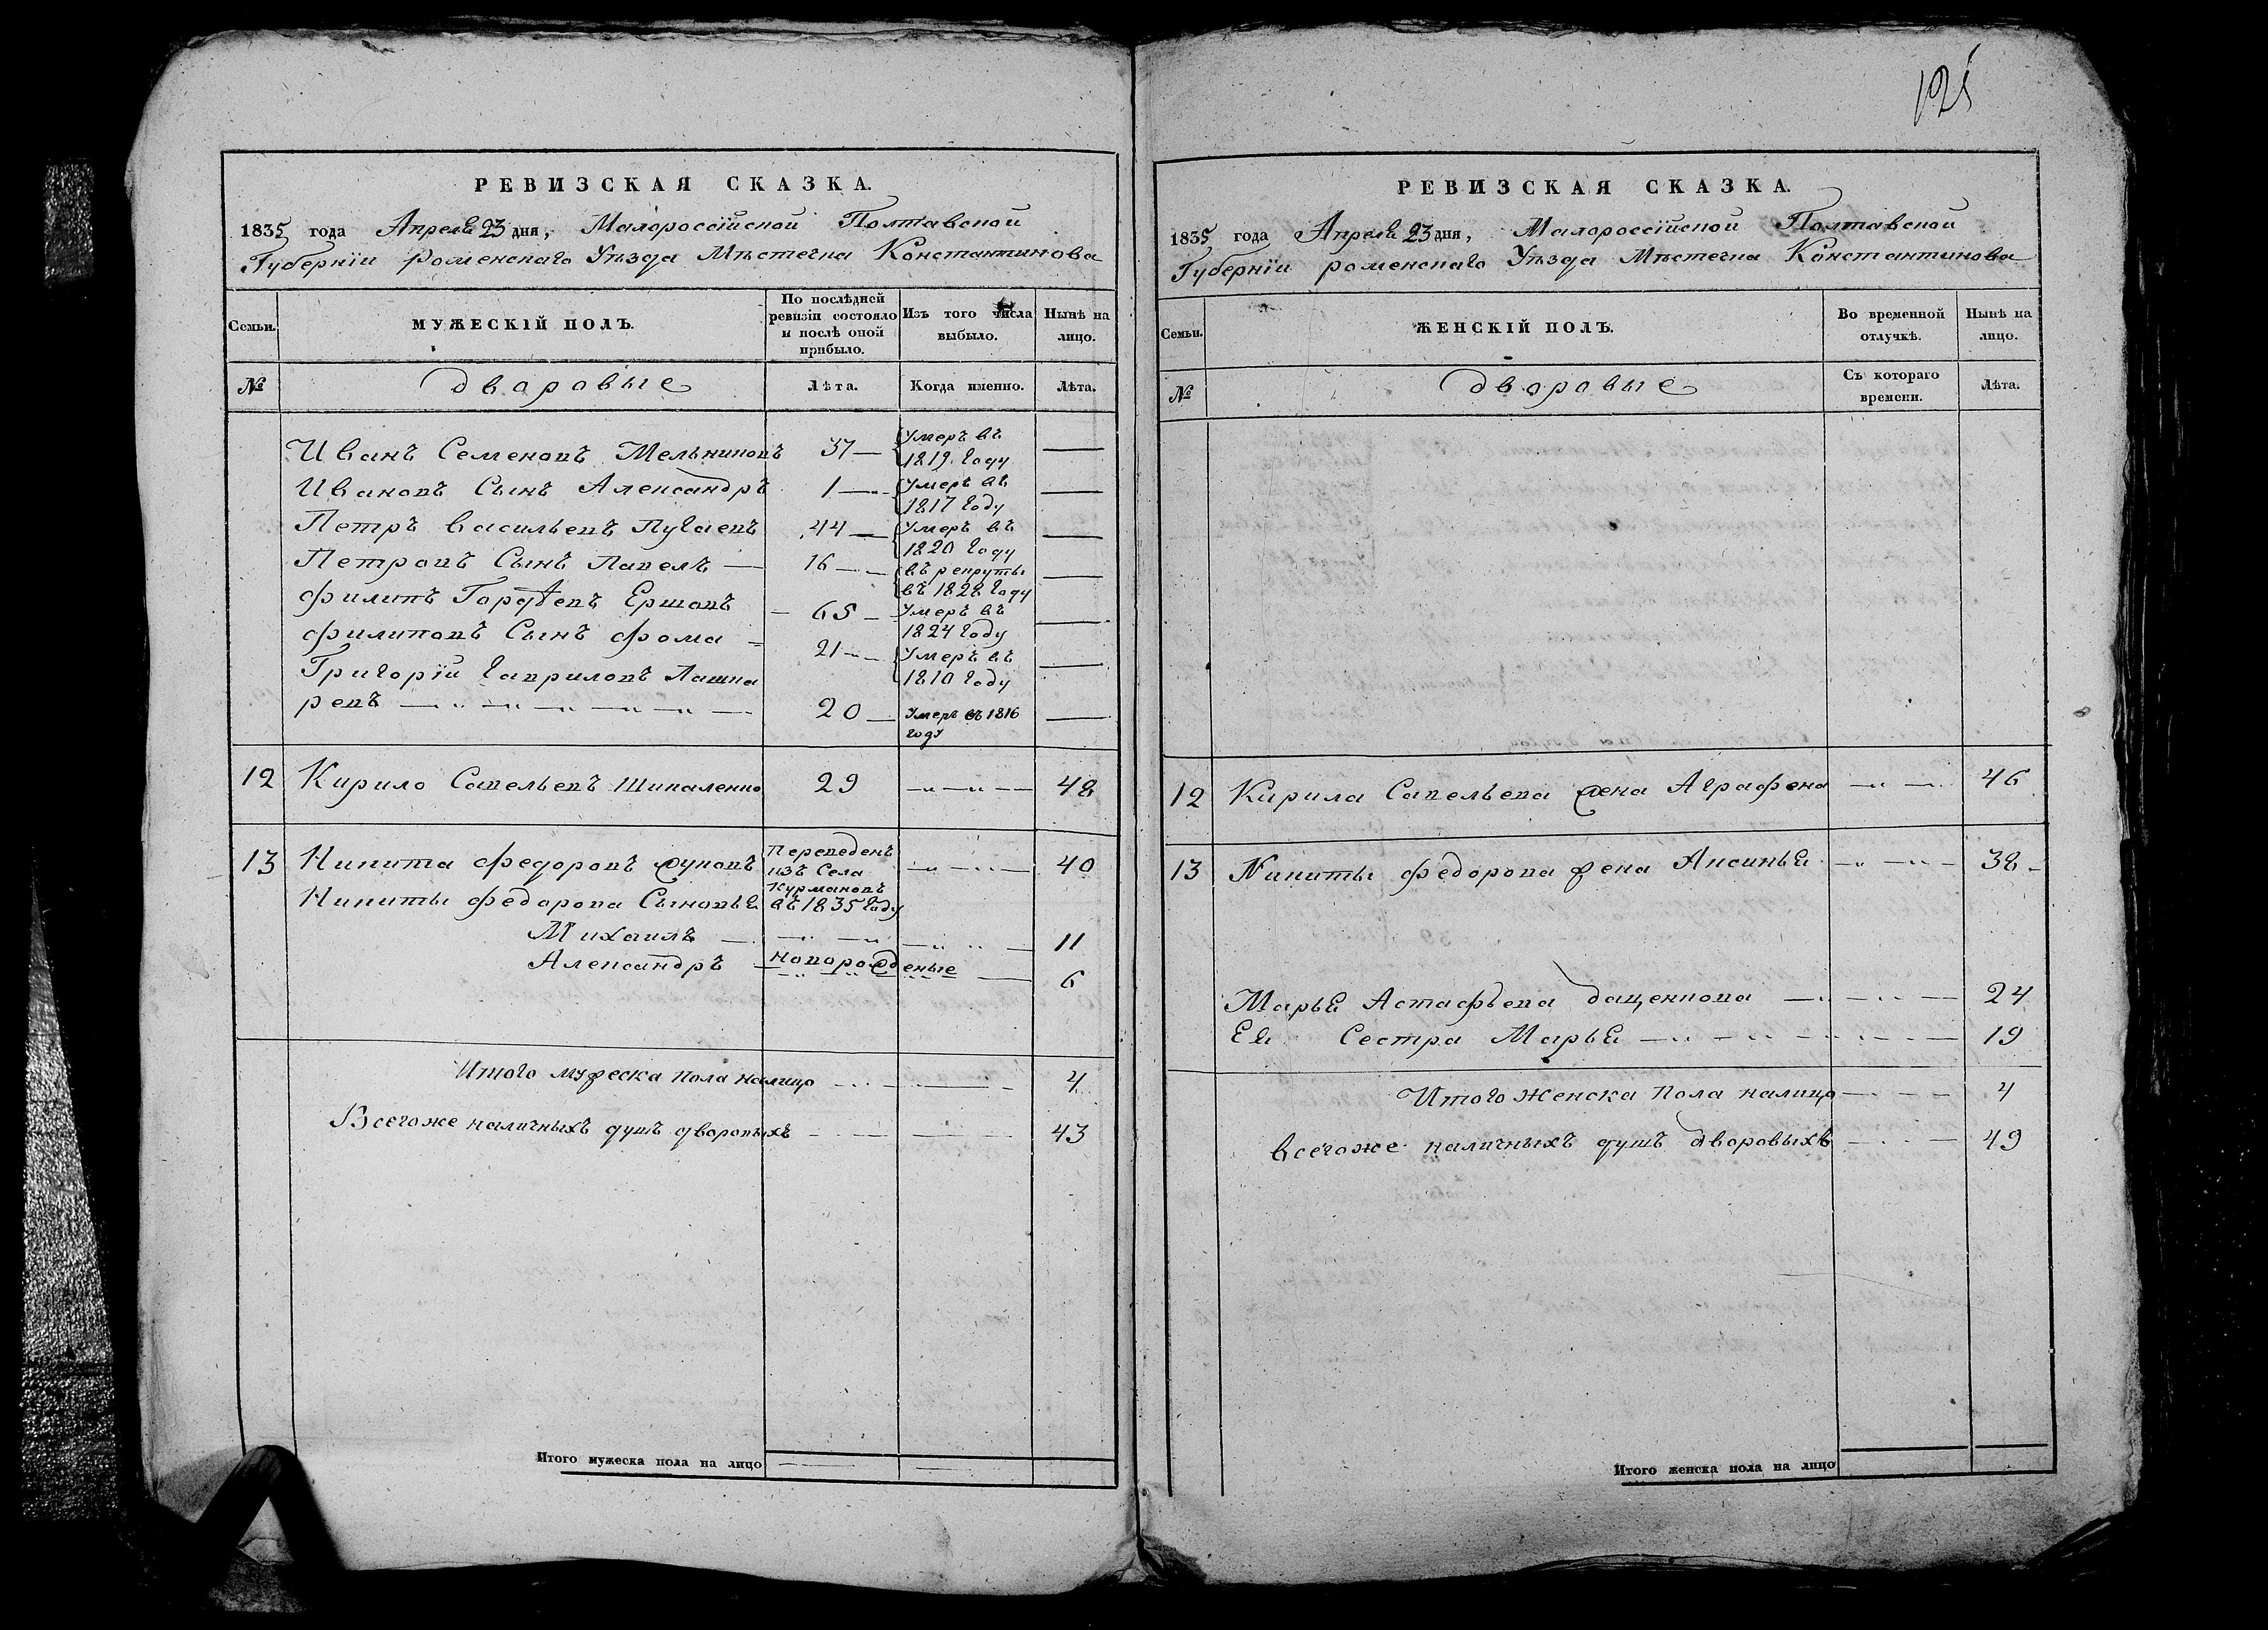 РЕВИЗСКАЯ СКАЗКА.
1835 года Апреля 23 дня, Малороссійской Полтавской
Губерніи роменскаго Уѣзда Мѣстечка Константинова
Семьи.
МУЖЕСКІЙ ПОЛЪ.
По послѣдней ревизіи состояло и послѣ оной прибыло.
Изъ того числа выбыло.
Нынѣ на лицо.
№
дворовые
Лѣта.
Когда именно.
Лѣта.
Иванъ Семеновъ Мельниковъ 37 Умеръ въ 1819 году
Ивановъ Сынъ Александръ 1 Умеръ въ 1817 году
Петръ Васильевъ Пугаевъ 44 Умеръ въ 1820 году
Петровъ Сынъ Павелъ 16 въ рекруты въ 1828 году
Филипъ Гордѣевъ Ершовъ 65 Умеръ въ 1824 году
Филиповъ Сынъ Фома 21 Умеръ въ 1810 году
Григорій Гавриловъ Лашка
ревъ 20 Умеръ въ 1816 году
12 Кирило Савельевъ Шикаленко 29 48
13 Никита Федоровъ Жуковъ Переведенъ изъ Села Курмановъ въ 1835 году 40
Никиты Федорова Сыновья
Михаилъ 11
Александръ Новорожденые 6
Итого мужеска пола налицо 4
Всегоже наличныхъ душъ дворовыхъ 43
Итого мужеска пола на лицо
125
РЕВИЗСКАЯ СКАЗКА.
1835 года Апреля 23 дня, Малороссійской Полтавской
Губерніи роменскаго Уѣзда Мѣстечка Константинова
Семьи.
ЖЕНСКІЙ ПОЛЪ.
Во временной отлучкѣ.
Нынѣ на лицо.
№
дворовые
Съ котораго времени.
Лѣта.
12 Кирила Савельева жена Аграфена 46
13 Никиты Федорова жена Аксинья 38
Марья Астафьева даценкова 24
Ея Сестра Марья 19
Итого женска пола налицо 4
всегоже наличныхъ душъ дворовыхъ 49
Итого женска пола на лицо